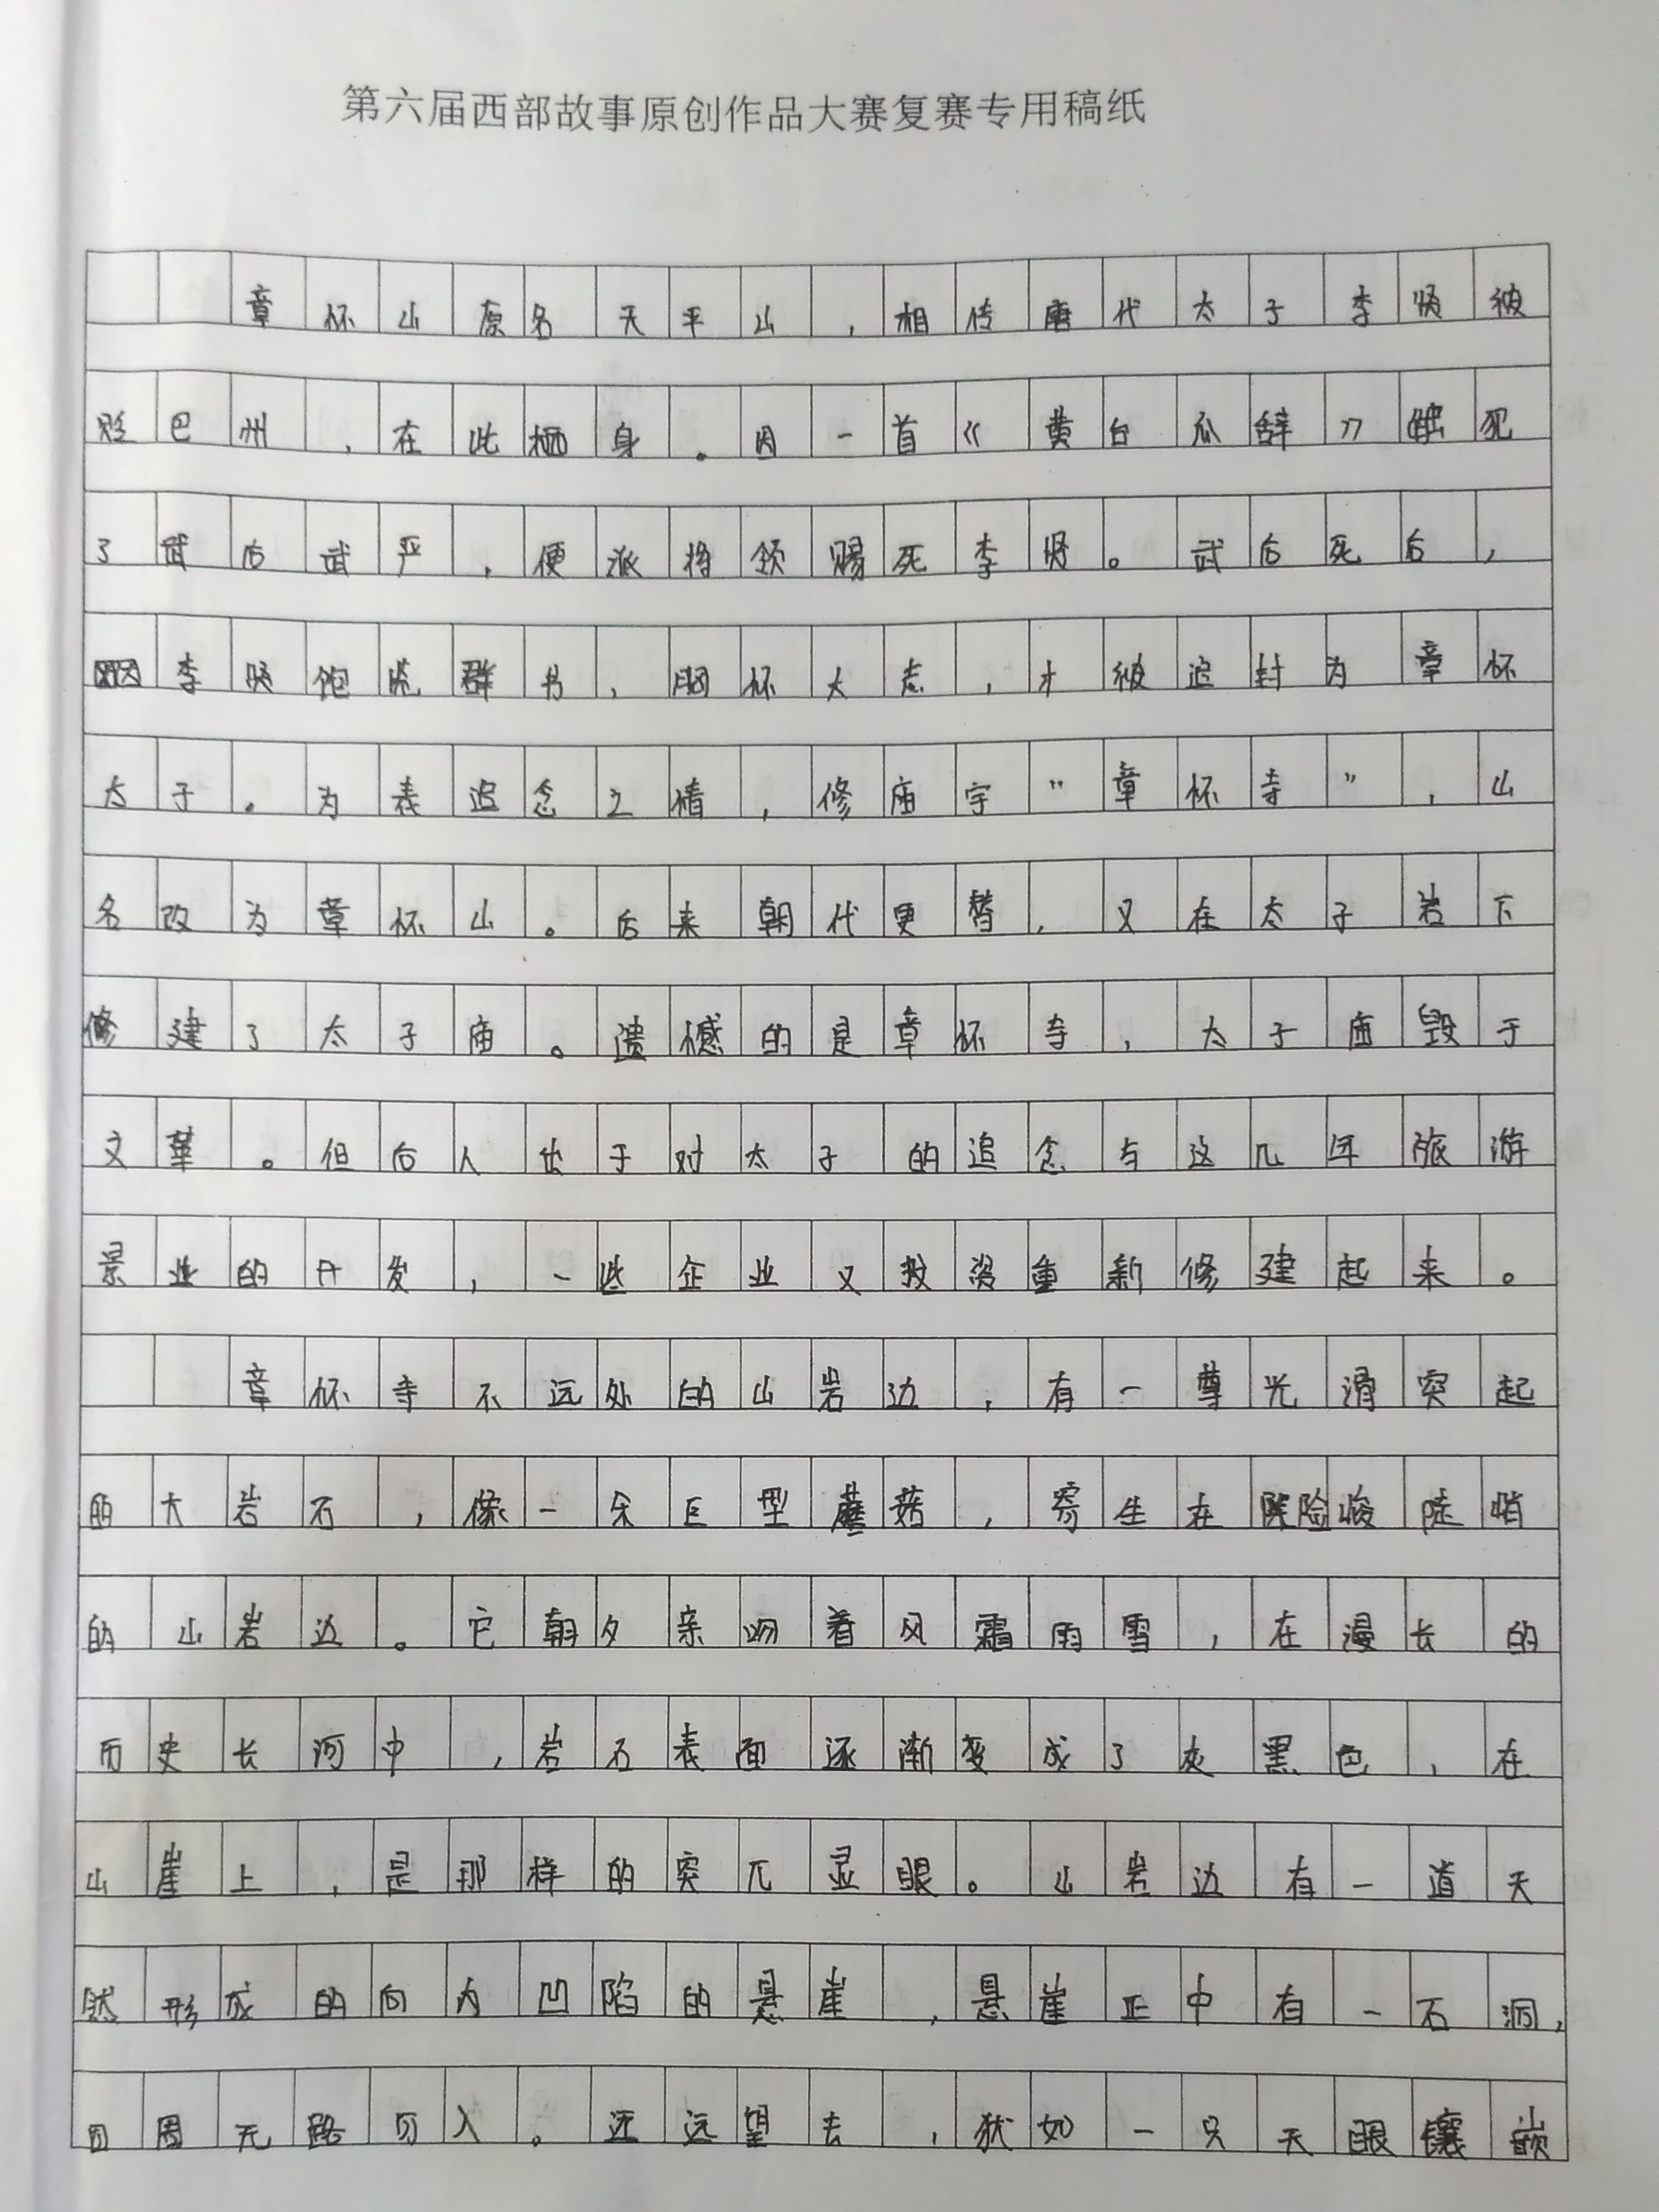 第六届西部故事原创作品大赛复赛专用稿纸
章怀山原名天平山，相传唐代太子李贤被
贬巴州，在此栖身。因一首《黄台瓜辞》触犯
了武后武严，便派将领赐死李贤。武后死后，
李贤饱览群书，胸怀大志，才被追封为章怀
太子。为表追念之情，修庙宇“章怀寺”，山
名改为章怀山。后来朝代更替，又在太子岩下
修建了太子庙。遗憾的是章怀寺，太子庙毁于
文革。但后人出于对太子的追念与这几年旅游
景业的开发，一些企业又投资重新修建起来。
章怀寺不远处的山岩边，有一尊光滑突起
的大岩石，像一朵巨型蘑菇，寄生在险峻陡峭
的山岩边。它朝夕亲吻着风霜雨雪，在漫长的
历史长河中，岩石表面逐渐变成了灰黑色，在
山崖上，是那样的突兀显眼。山岩边有一道天
然形成的向内凹陷的悬崖，悬崖正中有一石洞，
四周无路可入。远远望去，犹如一只天眼镶嵌